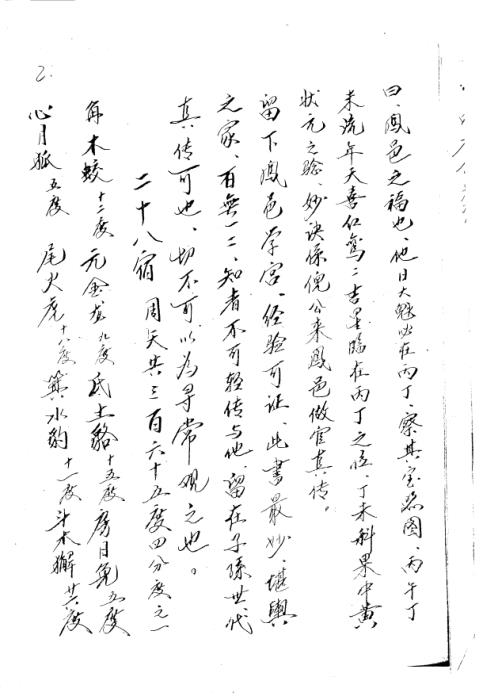 曰、鳳邑之福也、他日大魁必在丙丁、察其宝照图、丙午丁
未流年天喜红鸾二吉星临在丙丁之位、丁未科果中黄
状元之验、妙诀係倪公来鳳邑做官真传。
留下鳳邑学宫、经验可证、此書最妙、堪舆
之家、百無一二、知者不可轻传与他、留在子孫世代
真传可也、切不可以为寻常观之也。
二十八宿 周天共三百六十五度四分度之一
角木蛟 十二度 亢金龙 九度 氐土貉 十五度 房日兔 五度
心月狐 五度 尾火虎 十八度 箕水豹 十一度 斗木獬 廿六度
2.